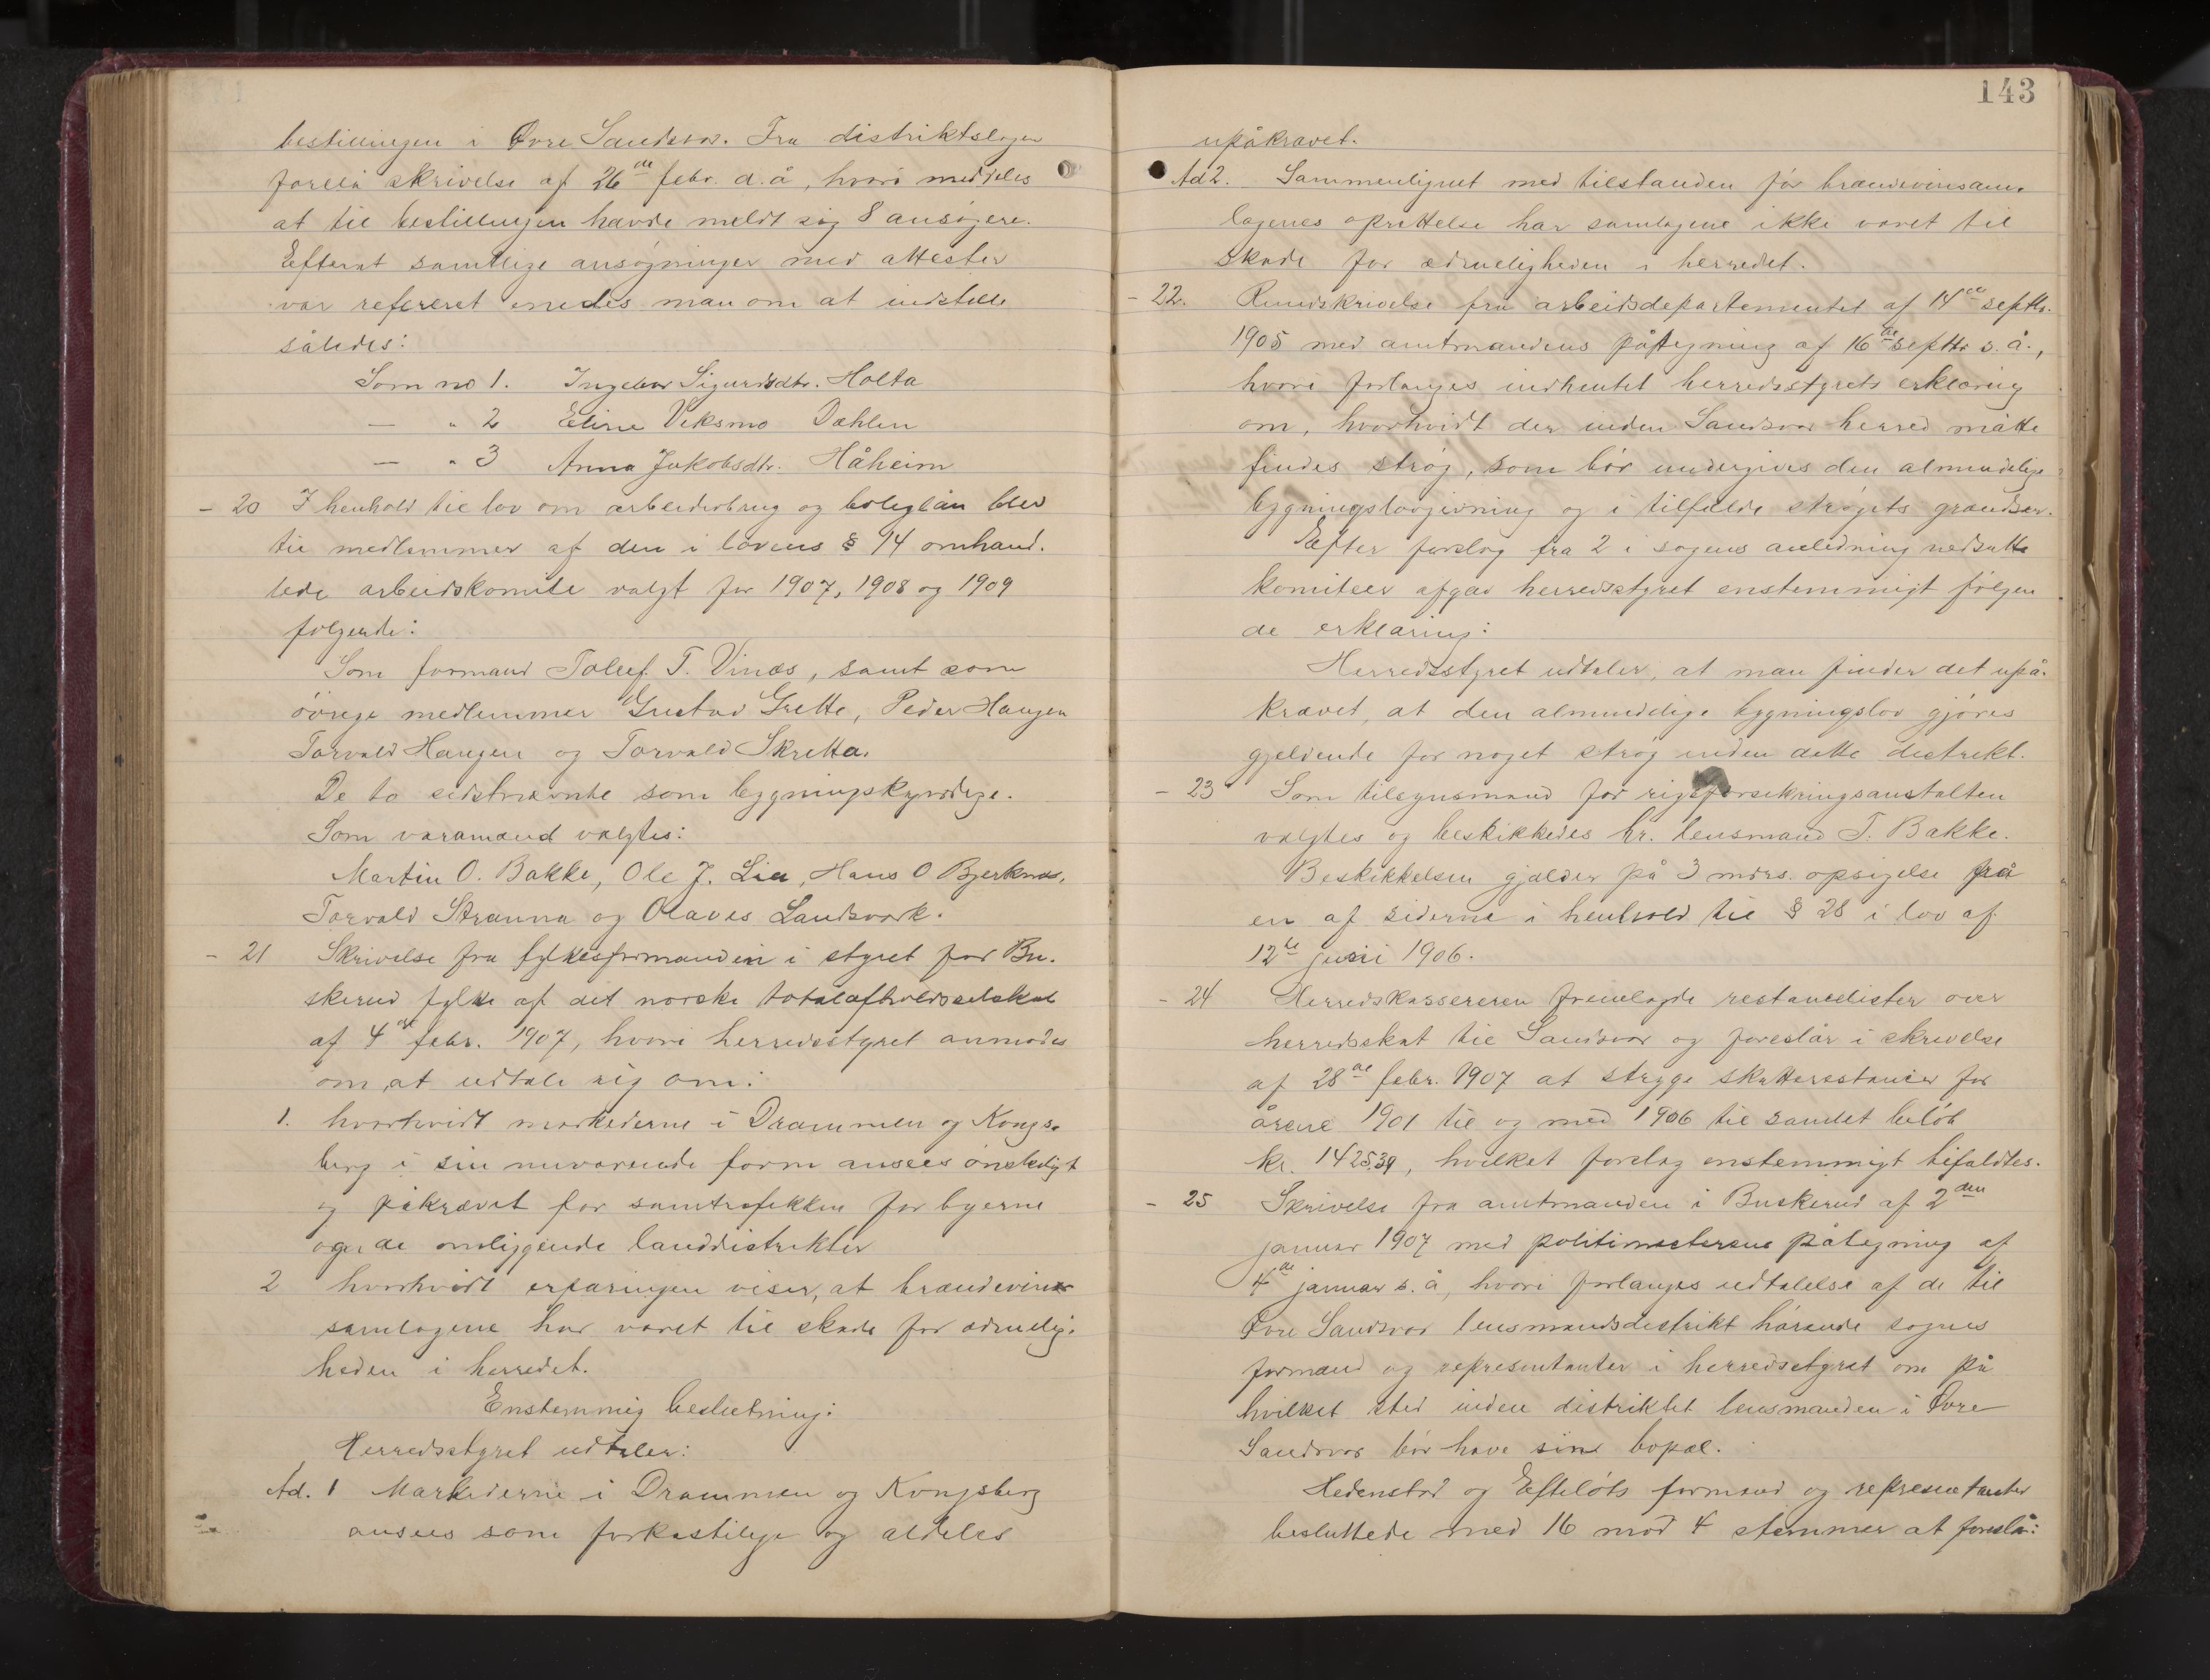 bestillingen i Øvre Sandsvær. Fra distriktslægen
forelå skrivelse af 26de febr. d. å, hvori meddeles
at til bestillingen havde meldt sig 8 ansøgere.
Efterat samtlige ansøgninger med attester
var refereret enedes man om at indstille
således:
Som no 1. Ingebor Sigurdsdtr. Holta
— " 2 Eline Veksmo Dæhlen
— " 3 Anna Jakobsdtr. Håheim
- 20 I henhold til lov om arbeiderbrug og boliglån blev
til medlemmer af den i lovens § 14 omhand.
lede arbeidskomite valgt for 1907, 1908 og 1909
følgende:
Som formand Tollef. T. Vinæs, samt som
øvrige medlemmer Gustav Grette, Peder Haugen
Torvald Haugen og Torvald Skretta.
De to sidstnævnte som bygningskyndige.
Som varamænd valgtes:
Martin O. Bakke, Ole J. Lia, Hans O Bjerknæs,
Torvald Stranna og Olaves Landsværk.
- 21 Skrivelse fra fylkesformanden i styret for Bu.
skerud fylke af det norske totalafholdsselskab
af 4de febr. 1907, hvori herredsstyret anmodes
om at udtale sig om:
1. hvorhvidt markederne i Drammen og Kongs.
berg i sin nuværende form ansees ønskeligt
og påkrævet for samtrafikken for byerne
og de omliggende landdistrikter
2 hvorhvidt erfaringen viser, at brændevins
samlagene har været til skade for ædruelig.
heden i herredet.
Enstemmig beslutning:
Herredsstyret udtaler:
Ad. 1 Markederne i Drammen og Kongsberg
ansees som forkastilige og aldeles
143
upåkrævet.
Ad 2. Sammenlignet med tilstanden før brændevinsam.
lagenes oprettelse har samlagene ikke været til
skade for ædrueligheden i herredet.
- 22. Rundskrivelse fra arbeidsdepartementet af 14de septbr.
1905 med amtmandens påtegning af 16de septbr s. å.,
hvori forlanges indhentet herredsstyrets erklæring
om, hvorhvidt der inden Sandsvær herred måtte
findes strøg, som bør undergives den almindelige
bygningslovgivning og i tilfælde strøgets grændser.
Efter forslag fra 2 i sagens anledning nedsatte
komiteer afgav herredsstyret enstemmigt følgen
de erklæring:
Herredsstyret udtaler, at man finder det upå.
krævet, at den almindelige bygningslov gjøres
gjeldende for noget strøg inden dette distrikt.
- 23 Som tilsynsmand for rigsforsikringsanstalten
valgtes og beskikkedes hr. lensmand T. Bakke.
Beskikkelsen gjælder på 3 mdrs. opsigelse fra
en af siderne i henhold til § 28 i lov af
12te juni 1906.
- 24 Herredskassereren fremlagde restancelister over
herredsskat til Sandsvær og foreslår i skrivelse
af 28de febr. 1907 at stryge skatterestancer for
årene 1901 til og med 1906 til samlet beløb
kr. 1425.39, hvilket forslag enstemmigt bifaldtes.
- 25 Skrivelse fra amtmanden i Buskerud af 2den
januar 1907 med politimesterens påtegning af
4de januar s. å, hvori forlanges udtalelse af de til
Øvre Sandsvær lensmandsdistrikt hørende sognes
formænd og repræsentanter i herredsstyret om på
hvilket sted inden distriktet lensmanden i Øvre
Sandsvær bør have sin bopæl.
Hedenstad og Efteløts formænd og repræsentanter
besluttede med 16 mod 4 stemmer at foreslå: